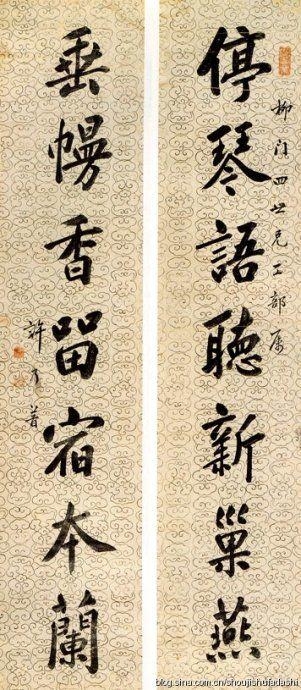 柳門四世兄工部屬
停琴語聽新巢燕
垂幔香留宿本蘭
許乃普
blog.sina.com.cn/shoujishufadashi